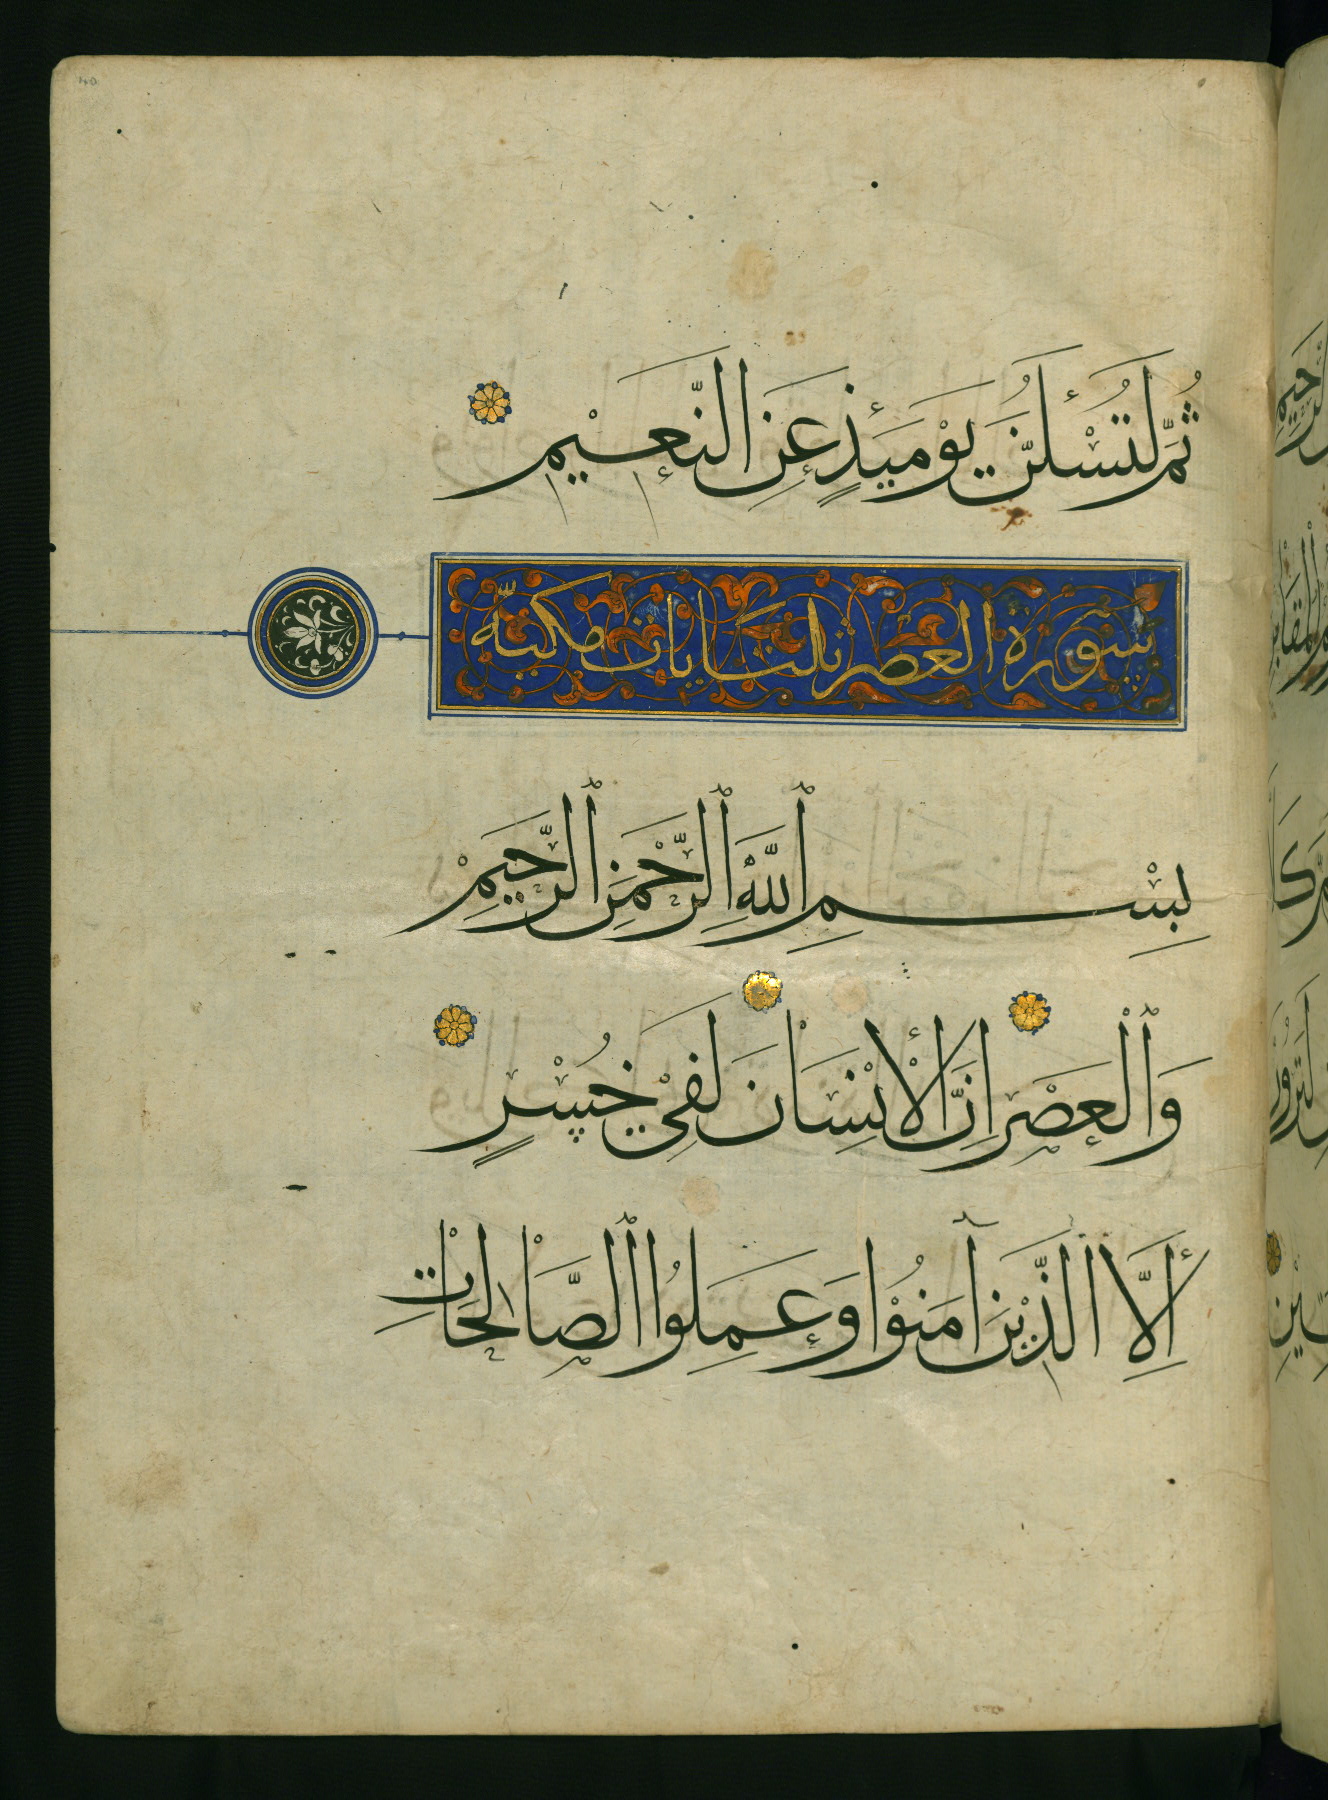 ثُمَّ لَتُسْئَلُنَّ يَوْمَئِذٍ عَنِ النَّعِيْمِ
سورة العصر ثلث ايات مكيّة
بِسْمِ اللّٰهِ الرَّحْمَنِ الرَّحِيمِ
وَالْعَصْرِ اِنَّ الْأِنْسَانَ لَفِيْ خُسْرٍ
أِلَّا الَّذِيْنَ آمَنُوْا وَعَمِلُوا الصَّالِحَاتِ